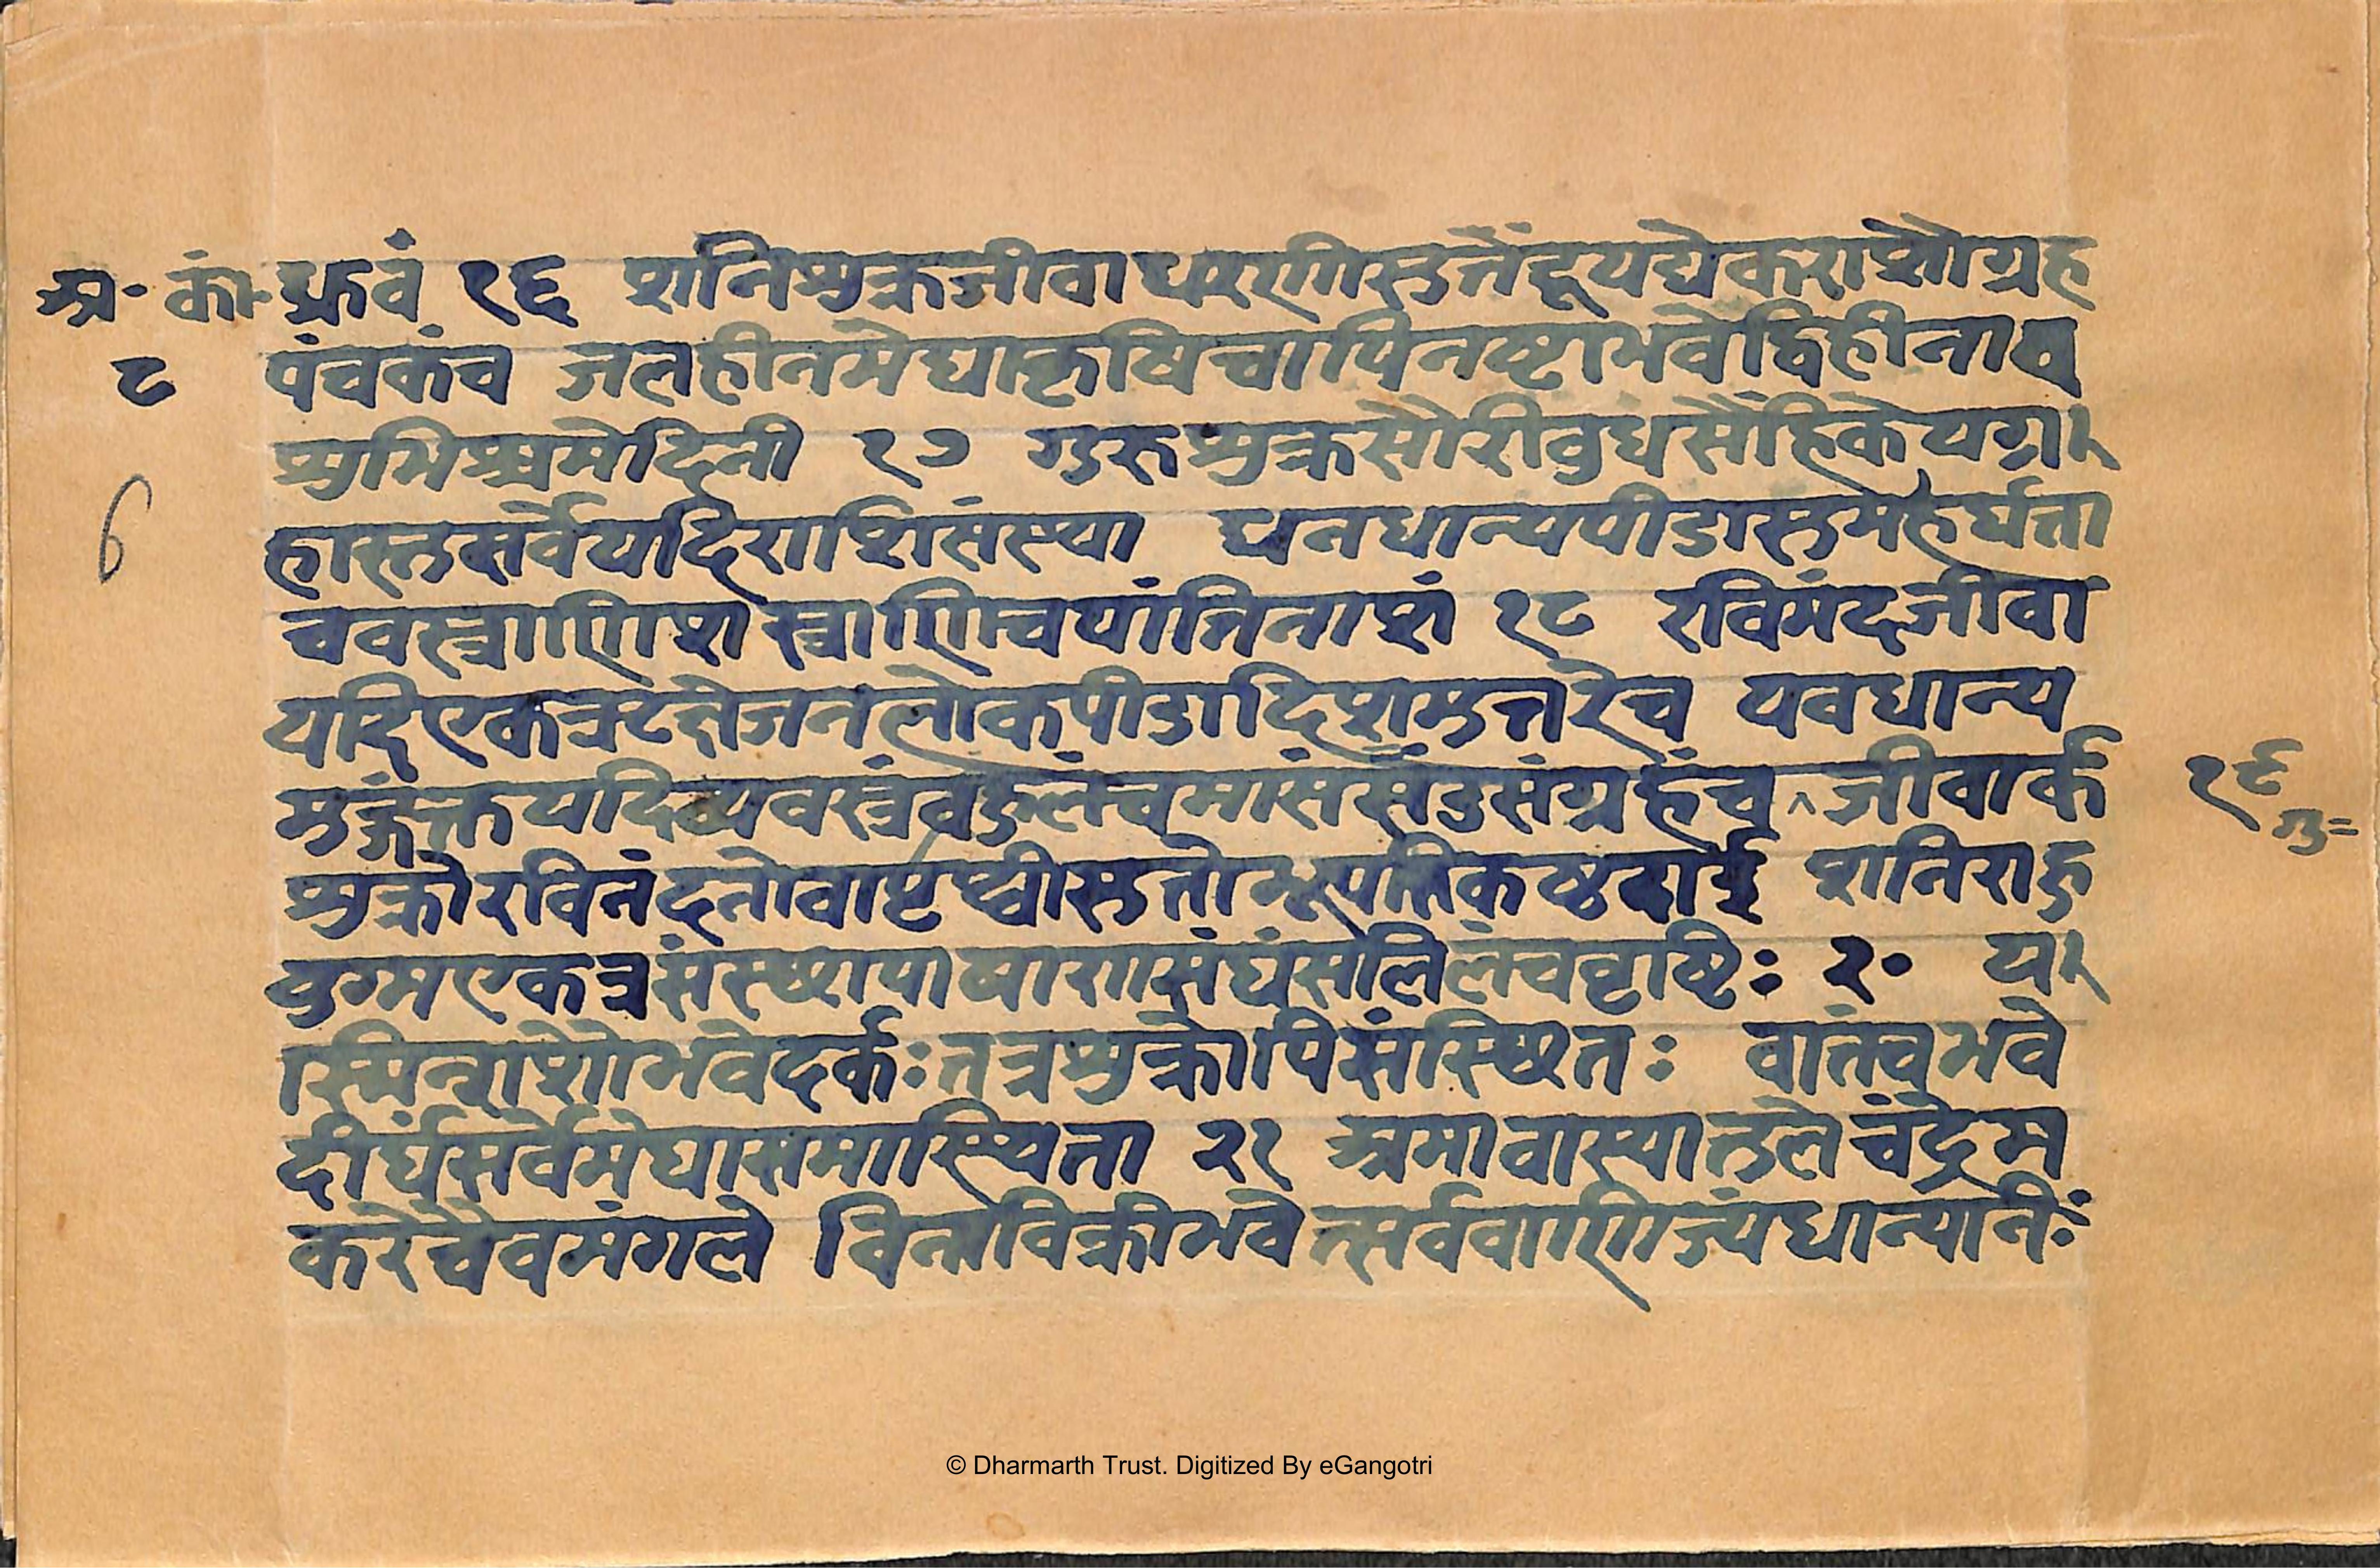 अ॰ कां॰ ध्रुवं १६ शनिशुक्रजीवा धरणीसुतेंदूयद्येकराशौग्रह
८ पंचकंच जलहीनमेघाकृषिचापिनष्टाभवेद्विहीनाच
शुभिक्षमेदिनी १७ गुरुशुक्रसौरीबुधसैंहिकेयग्र
६
हास्तुसर्वेयदिराशिसंस्था धनधान्यपीडास्तुमहर्घता
चवस्त्राणिशस्त्राणिचयांतिनाशं १८ रविमंदजीवा
यदिएकत्रटक्षेजनलोकपीडादिशमुत्तरेच यवधान्य
यदिद्यवस्त्रंवहुलंचमासंसंडसंग्रहंच^जीवार्क १९
शुक्रोरविनंदनोवापृथ्वीसुतोभूपतिकष्टदाई शनिराहु
युग्मएकत्रसंस्थापाषाणसंघंसलिलंचवृष्टिः २० य
स्मिन्राशोभवेदर्कःतत्रशुक्रोपिसंस्थितः वातंचभवे
दीर्घंसर्वेमेघासमास्थिता २१ अमावास्यातुलेचंद्रेम
करेचैवमंगले विनाविक्रीभवेत्सर्ववाणिज्यंधान्यानिः
© Dharmarth Trust. Digitized By eGangotri